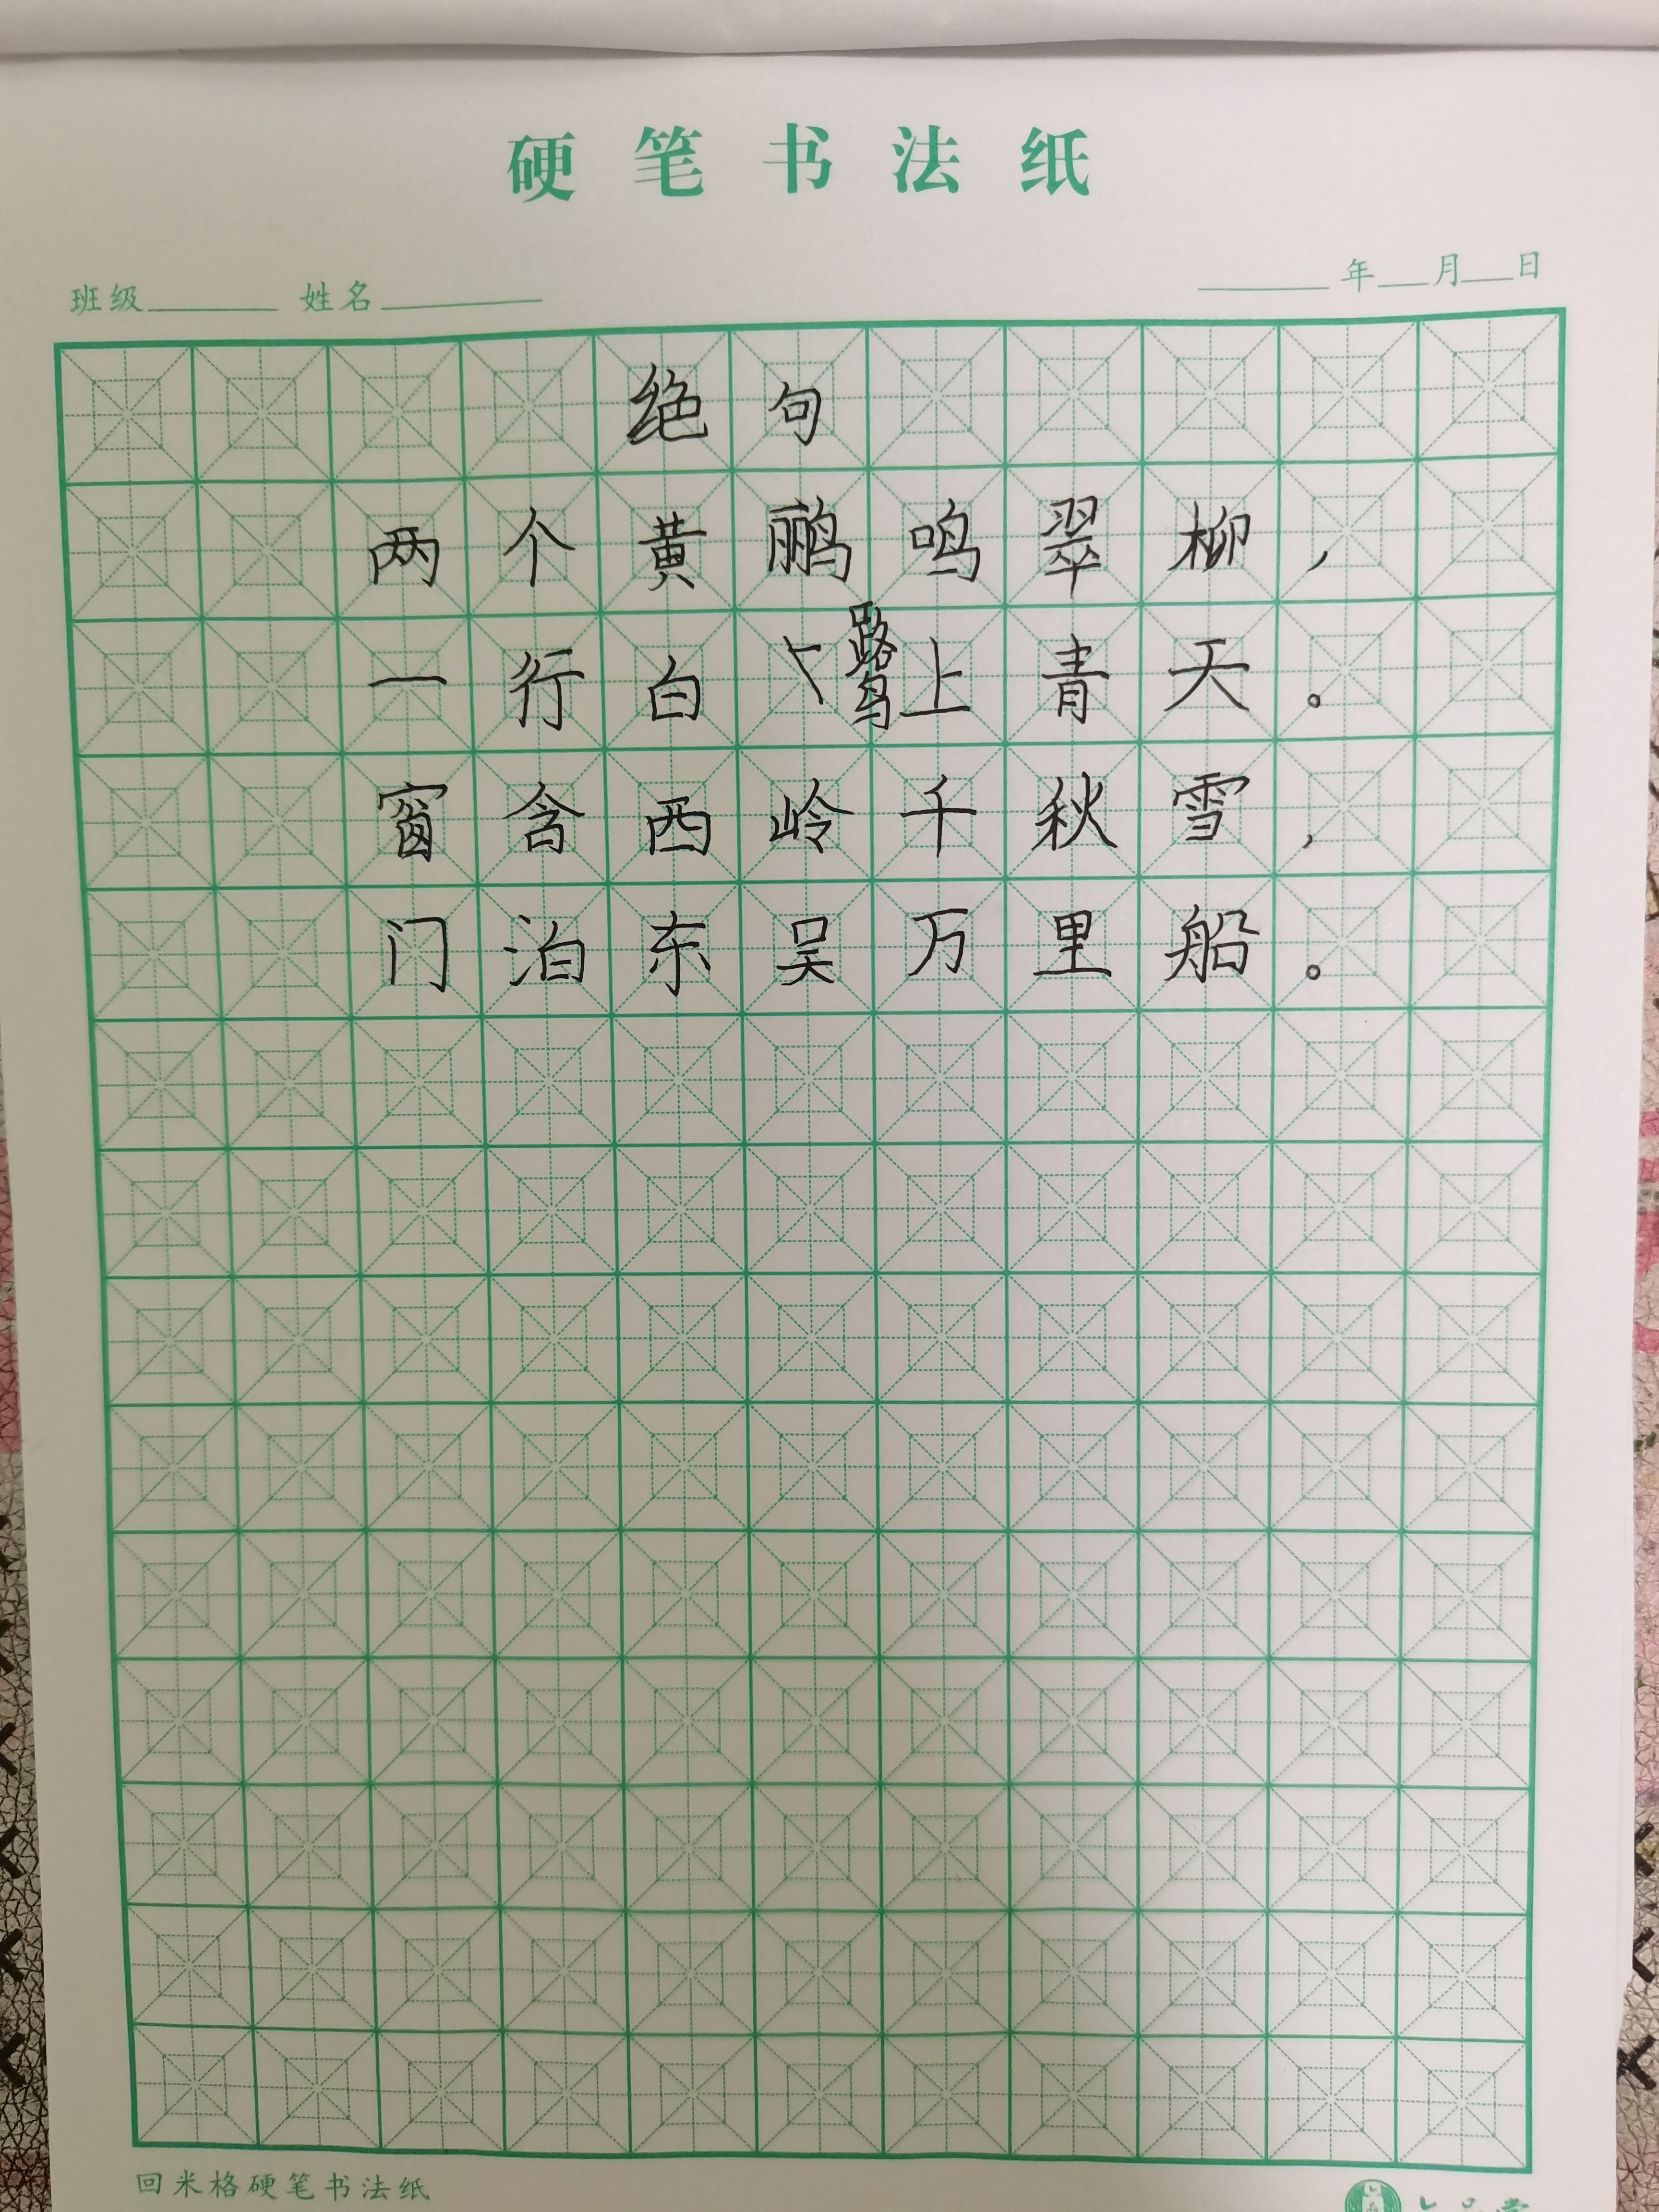 硬笔书法纸
班级 姓名 年 月 日
绝句
两个黄鹂鸣翠柳，
一行白鹭上青天。
窗含西岭千秋雪，
门泊东吴万里船。
回米格硬笔书法纸